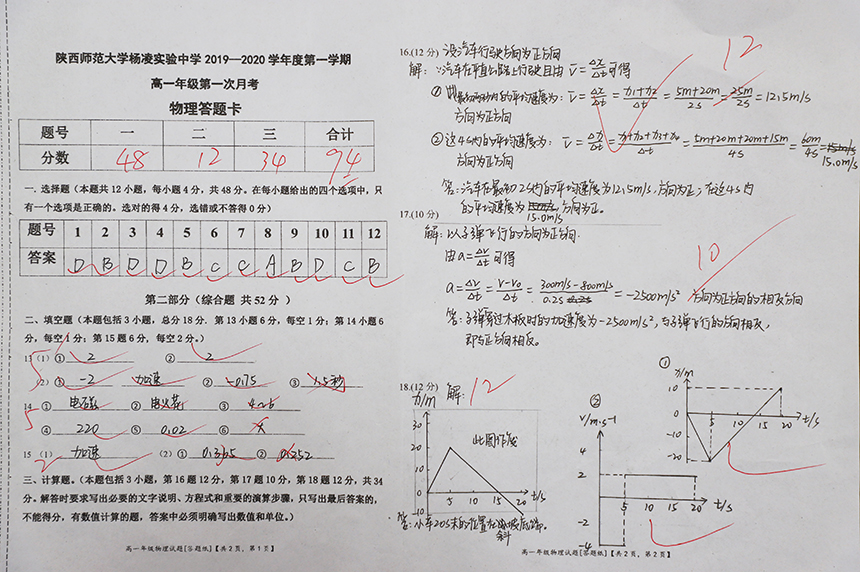 陕西师范大学杨凌实验中学 2019—2020 学年度第一学期
高一年级第一次月考
物理答题卡
题号 一 二 三 合计
分数 48 12 34 94
一. 选择题（本题共 12 小题，每小题 4 分，共 48 分。在每小题给出的四个选项中，只
有一个选项是正确的。选对的得 4 分，选错或不答得 0 分）
题号 1 2 3 4 5 6 7 8 9 10 11 12
答案 D B D D B C C A B D C B
第二部分（综合题 共 52 分 ）
二、填空题（本题包括 3 小题，总分 18 分．第 13 小题 6 分，每空 1 分；第 14 小题 6
分，每空 1 分；第 15 题 6 分，每空 2 分。）
13（1）① 2 ② 2
（2）① -2 加速 ② -0.75 ③ 1.5秒
14 ① 电磁 ② 电火花 ③ 4~6
④ 220 ⑤ 0.02 ⑥
15（1） 加速 （2）①
三、计算题。（本题包括 3 小题，第 16 题 12 分，第 17 题 10 分，第 18 题 12 分，共 34
分。解答时要求写出必要的文字说明、方程式和重要的演算步骤，只写出最后答案的，
不能得分，有数值计算的题，答案中必须明确写出数值和单位。）
高一年级物理试题[答题纸]【共 2 页，第 1 页】
16.(12 分) 设汽车行驶方向为正方向 12
解：∵汽车在平直公路上行驶且由 v̄=Δx/Δt可得
① 最初两秒内的平均速度为：v̄=Δx/Δt=(x1+x2)/Δt=(5m+20m)/2s=25m/2s=12.5m/s
方向为正方向
②这4s内的平均速度为：v̄=Δx/Δt=(x1+x2+x3+x4)/Δt=(5m+20m+20m+15m)/4s=60m/4s=
15.0m/s
方向为正方向
答：汽车在最初2s内的平均速度为12.5m/s，方向为正；在这4s内
的平均速度为 15.0m/s 方向为正。
17.(10 分)
解：以子弹飞行的方向为正方向. 10
由a=Δv/Δt可得
a=Δv/Δt=(v-v0)/Δt=(300m/s-800m/s)/0.2s=-2500m/s² 方向为正方向的相反方向
答：子弹穿过木板时的加速度为-2500m/s²，与子弹飞行的方向相反，
即与正方向相反。
18.(12 分) 解： 12
x/m
30
20
10
0
-10
5 10 15 20 t/s
此图作废
①
x/m
10
0
-10
-20
5 10 15 20 t/s
②
v/m·s-1
4
2
-2
-4
5 10 15 20 t/s
答：小车20s末的位置在斜坡底端。
高一年级物理试题[答题纸]【共 2 页，第 2 页】